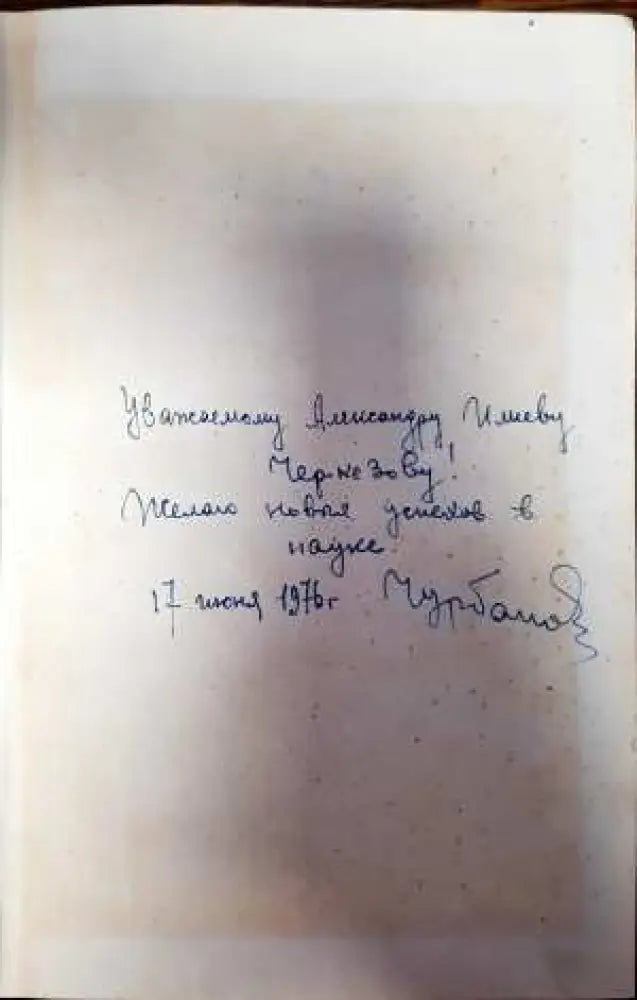 Уважаемому Александру Илиеву
Черкезову!
Желаю новых успехов в
науке.
17 июня 1976г Чурбанов